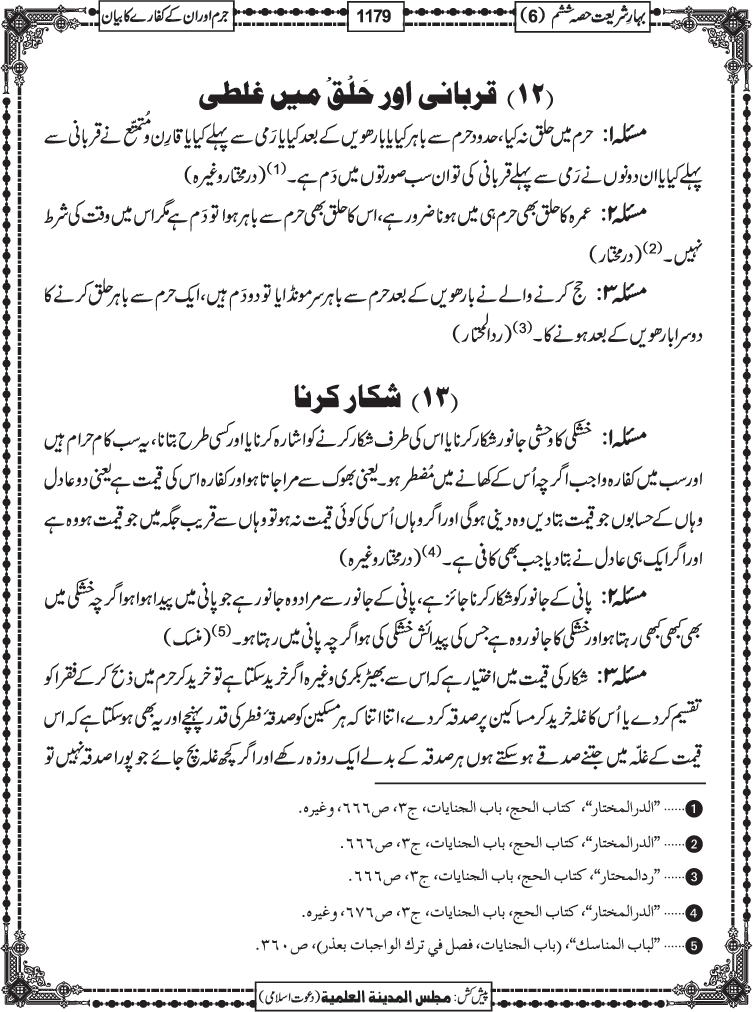 بہارِ شریعت حصہ ششم (6)
1179
جرم اور ان کے کفارے کا بیان
(۱۲) قربانی اور حَلْق میں غلطی
مسئلہ ۱: حرم میں حلق نہ کیا، حدودِ حرم سے باہر کیا یا بارھویں کے بعد کیا یا رَمی سے پہلے کیا یا قارِن و مُتَمَتِّع نے قربانی سے
پہلے کیا یا ان دونوں نے رَمی سے پہلے قربانی کی تو ان سب صورتوں میں دَم ہے۔(1) (درمختار وغیرہ)
مسئلہ ۲: عمرہ کا حلق بھی حرم ہی میں ہونا ضرور ہے، اس کا حلق بھی حرم سے باہر ہوا تو دَم ہے مگر اس میں وقت کی شرط
نہیں۔(2) (درمختار)
مسئلہ ۳: حج کرنے والے نے بارھویں کے بعد حرم سے باہر سر مونڈایا تو دو دَم ہیں، ایک حرم سے باہر حلق کرنے کا
دوسرا بارھویں کے بعد ہونے کا۔(3) (ردالمحتار)
(۱۳) شکار کرنا
مسئلہ ۱: خشکی کا وحشی جانور شکار کرنا یا اس کی طرف شکار کرنے کو اشارہ کرنا یا اور کسی طرح بتانا، یہ سب کام حرام ہیں
اور سب میں کفارہ واجب اگرچہ اُس کے کھانے میں مُضطر ہو۔ یعنی بھوک سے مرا جاتا ہو اور کفارہ اس کی قیمت ہے یعنی دو عادل
وہاں کے حسابوں جو قیمت بتادیں وہ دینی ہوگی اور اگر وہاں اُس کی کوئی قیمت نہ ہو تو وہاں سے قریب جگہ میں جو قیمت ہو وہ ہے
اور اگر ایک ہی عادل نے بتادیا جب بھی کافی ہے۔(4) (درمختار وغیرہ)
مسئلہ ۲: پانی کے جانور کو شکار کرنا جائز ہے، پانی کے جانور سے مراد وہ جانور ہے جو پانی میں پیدا ہوا ہو اگرچہ خشکی میں
بھی کبھی کبھی رہتا ہو اور خشکی کا جانور وہ ہے جس کی پیدائش خشکی کی ہو اگرچہ پانی میں رہتا ہو۔(5) (منسک)
مسئلہ ۳: شکار کی قیمت میں اختیار ہے کہ اس سے بھیڑ بکری وغیرہ اگر خرید سکتا ہے تو خرید کر حرم میں ذبح کر کے فقرا کو
تقسیم کردے یا اُس کا غلہ خرید کر مساکین پر صدقہ کردے، اتنا اتنا کہ ہر مسکین کو صدقۂ فطر کی قدر پہنچے اور یہ بھی ہوسکتا ہے کہ اس
قیمت کے غلّہ میں جتنے صدقے ہوسکتے ہوں ہر صدقہ کے بدلے ایک روزہ رکھے اور اگر کچھ غلہ بچ جائے جو پورا صدقہ نہیں تو
1 ......"الدرالمختار"، کتاب الحج، باب الجنایات، ج۳، ص۶۶۶، وغیرہ.
2 ......"الدرالمختار"، کتاب الحج، باب الجنایات، ج۳، ص۶۶۶.
3 ......"ردالمحتار"، کتاب الحج، باب الجنایات، ج۳، ص۶۶۶.
4 ......"الدرالمختار"، کتاب الحج، باب الجنایات، ج۳، ص۶۷۶، وغیرہ.
5 ......"لباب المناسك"، (باب الجنایات، فصل في ترك الواجبات بعذر)، ص۳۶۰.
پیش کش: مجلس المدینۃ العلمیۃ (دعوتِ اسلامی)